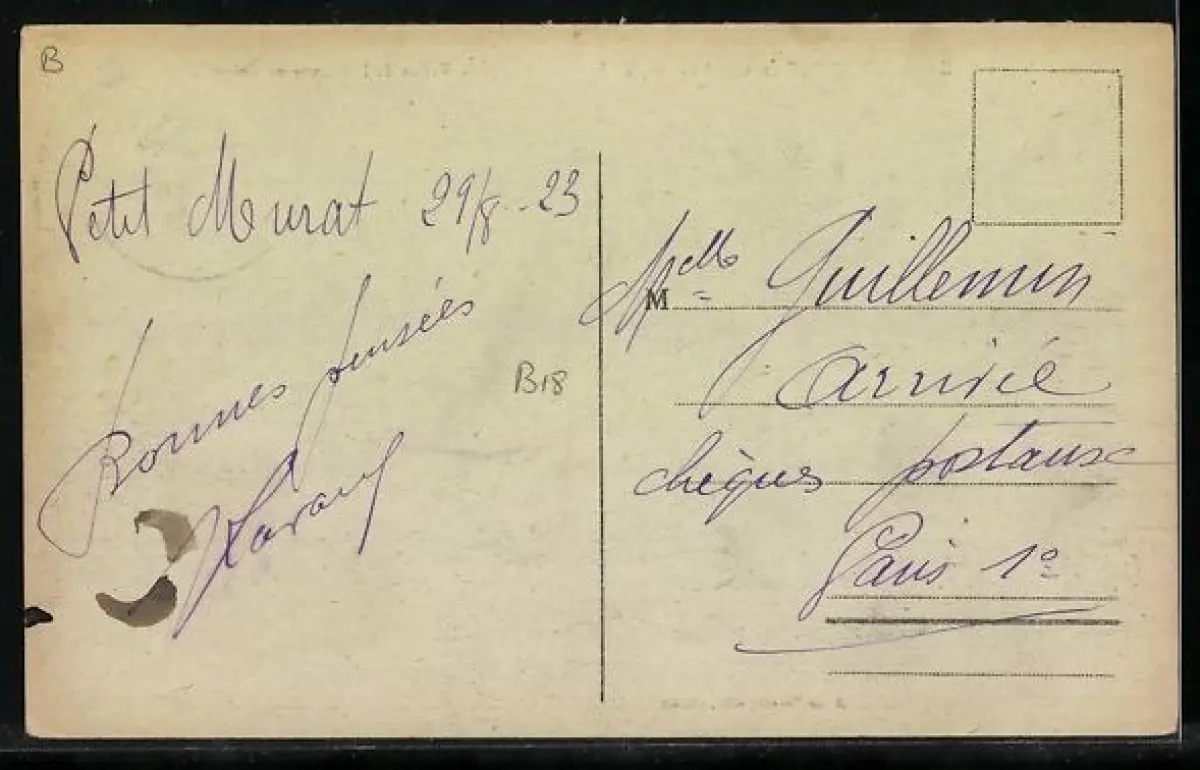 B
Petit Murat 29/8-23
Bonnes pensées
B18
M
Melle Guillemin
Arrivée
chèques postaux
Paris 1º